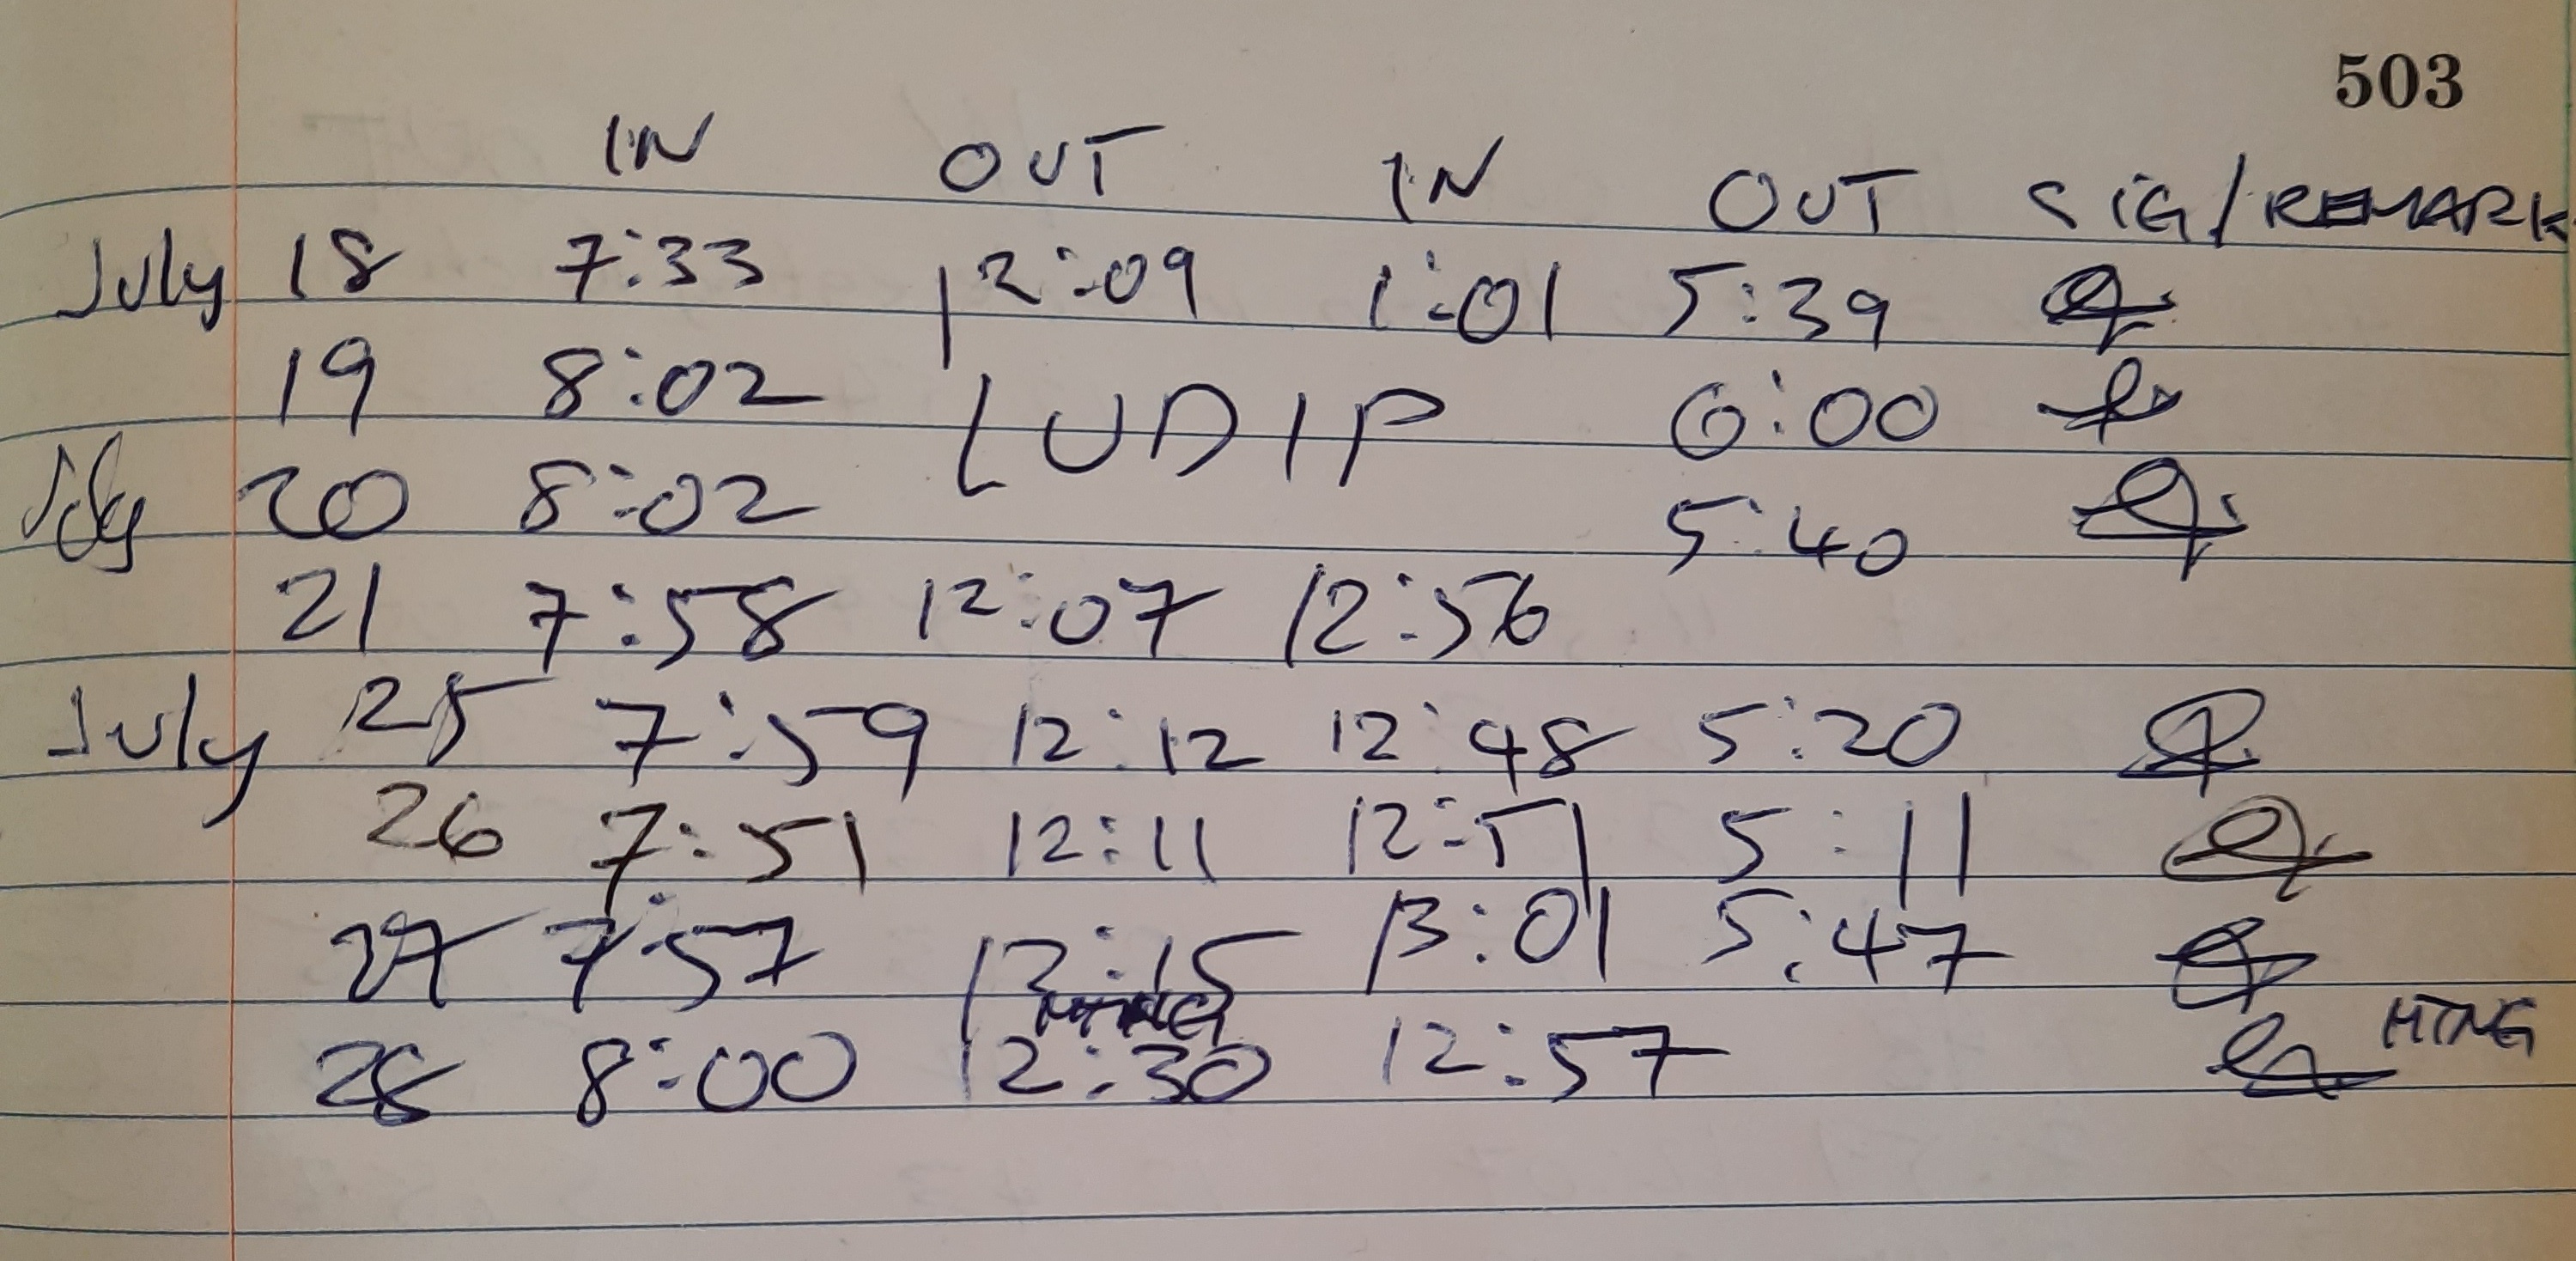 503
IN OUT IN OUT SIG/REMARK
July 18 7:33 12:09 1:01 5:39
19 8:02 LUDIP 6:00
July 20 8:02 5:40
21 7:58 12:07 12:56
July 25 7:59 12:12 12:48 5:20
26 7:51 12:11 12:51 5:11
27 7:57 12:15 13:01 5:47
28 8:00 12:30 12:57 MTNG